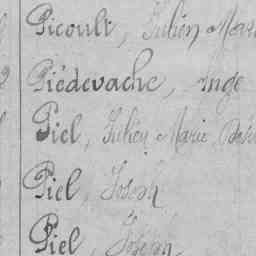 Picoult, Julien Marie
Piédevache, Ange
Piel, Julien Marie
Piel, Joseph
Piel, Joseph